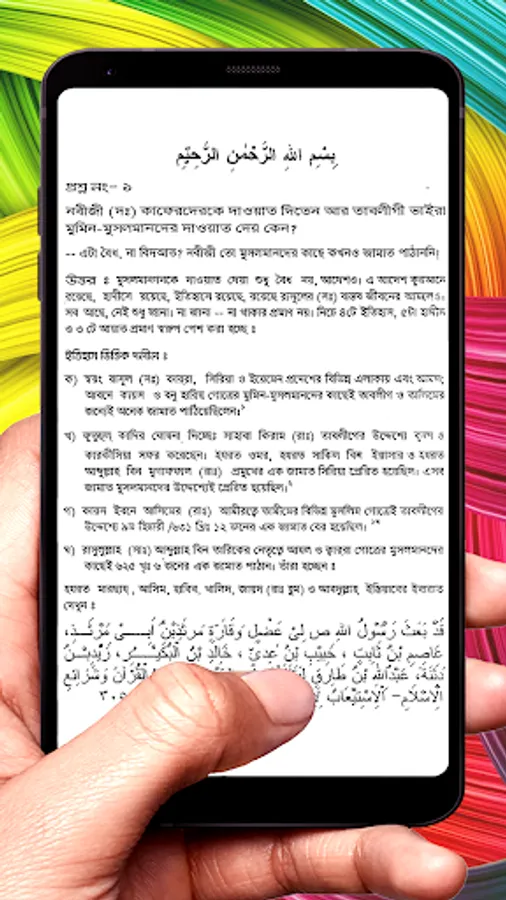 بِسْمِ اللهِ الرَّحْمٰنِ الرَّحِيْمِ
প্রশ্ন নং- ৯
নবীজী (দঃ) কাফেরদেরকে দাওয়াত দিতেন আর তাবলীগী ভাইরা
মুমিন-মুসলমানদের দাওয়াত দেয় কেন?
-- এটা বৈধ, না বিদআত? নবীজী তো মুসলমানদের কাছে কখনও জামাত পাঠাননি!
উত্তর ঃ মুসলমানদেরকে দাওয়াত দেয়া শুধু বৈধ নয়, আদেশও। এ আদেশ কুরআনে
রয়েছে, হাদীসে রয়েছে, ইতিহাসে রয়েছে, রয়েছে রাসূলের (সঃ) বাস্তব জীবনের আমলেও।
সব আছে, নেই শুধু জানা। না জানা -- না থাকার প্রমাণ নয়। নিচে ৪টে ইতিহাস, ৫টা হাদীস
ও ৩ টে আয়াত প্রমাণ স্বরূপ পেশ করা হচ্ছে ঃ
ইতিহাস ভিত্তিক দলীল ঃ
ক) স্বয়ং রাসূল (সঃ) সিরিয়া ও ইয়েমেন প্রদেশের বিভিন্ন এলাকায় এবং
ও বনু হারিস গোত্রের মুমিন-মুসলমানদের কাছেই তাবলীগ ও তালিমের
জন্যেই অনেক জামাত পাঠিয়েছিলেন।
খ) কাদির ঘোষনা দিচ্ছেঃ সাহাবা কিরাম (রাঃ) তাবলীগের উদ্দেশ্যে ও
কারকীসিয়া সফর করেছেন। হযরত ওমর, হযরত বিন ইয়াসার ও হযরত
আব্দুল্লাহ্ বিন মুগাফফাল (রাঃ) প্রমুখের এক জামাত সিরিয়া প্রেরিত হয়েছিল। এসব
জামাত মুসলমানদের উদ্দেশ্যেই প্রেরিত হয়েছিল।
গ) কায়স ইবনে আসিমের (রাঃ) আমীরত্বে তামীমের বিভিন্ন মুসলিম গোত্রেই তাবলীগের
উদ্দেশ্যে ৯ম হিজরী /৬৩১ খ্রিঃ ১২ জনের এক জামাত বের হয়েছিল।
ঘ) রাসূলুল্লাহ্ (সাঃ) আব্দুল্লাহ্ বিন তারিকের নেতৃত্বে আযল ও ক্বারাহ গোত্রের মুসলমানদের
কাছেই ৬২৫ খৃঃ ৬ জনের এক জামাত পাঠান। তাঁরা হচ্ছেন ঃ
হযরত মারছাদ, আসিম, হাবিব, খালিদ, জায়দ (রাঃ হুম) ও আবদুল্লাহ্ ইস্তিয়াবের ইবারত
দেখুন ঃ
قَدْ بَعَثَ رَسُوْلُ اللهِ ص لِىْ عَضَلٍ وَقَارَةٍ مَرْثَدِبْنِ اَبِىْ مَرْثَدٍ،
عَاصِمِ بْنِ ثَابِتٍ ، خُبَيْبِ بْنِ عَدِىٍّ ، خَالِدِ بْنِ الْبُكَيْرِ، زَيْدِبْنِ
دَثِنَةَ، عَبْدُاللهِ بْنِ طَارِقٍ الْقُرْآنَ وَشَرَائِعَ
الْاِسْلَامِ- اَلْاِسْتِيْعَابُ ٣٠٥